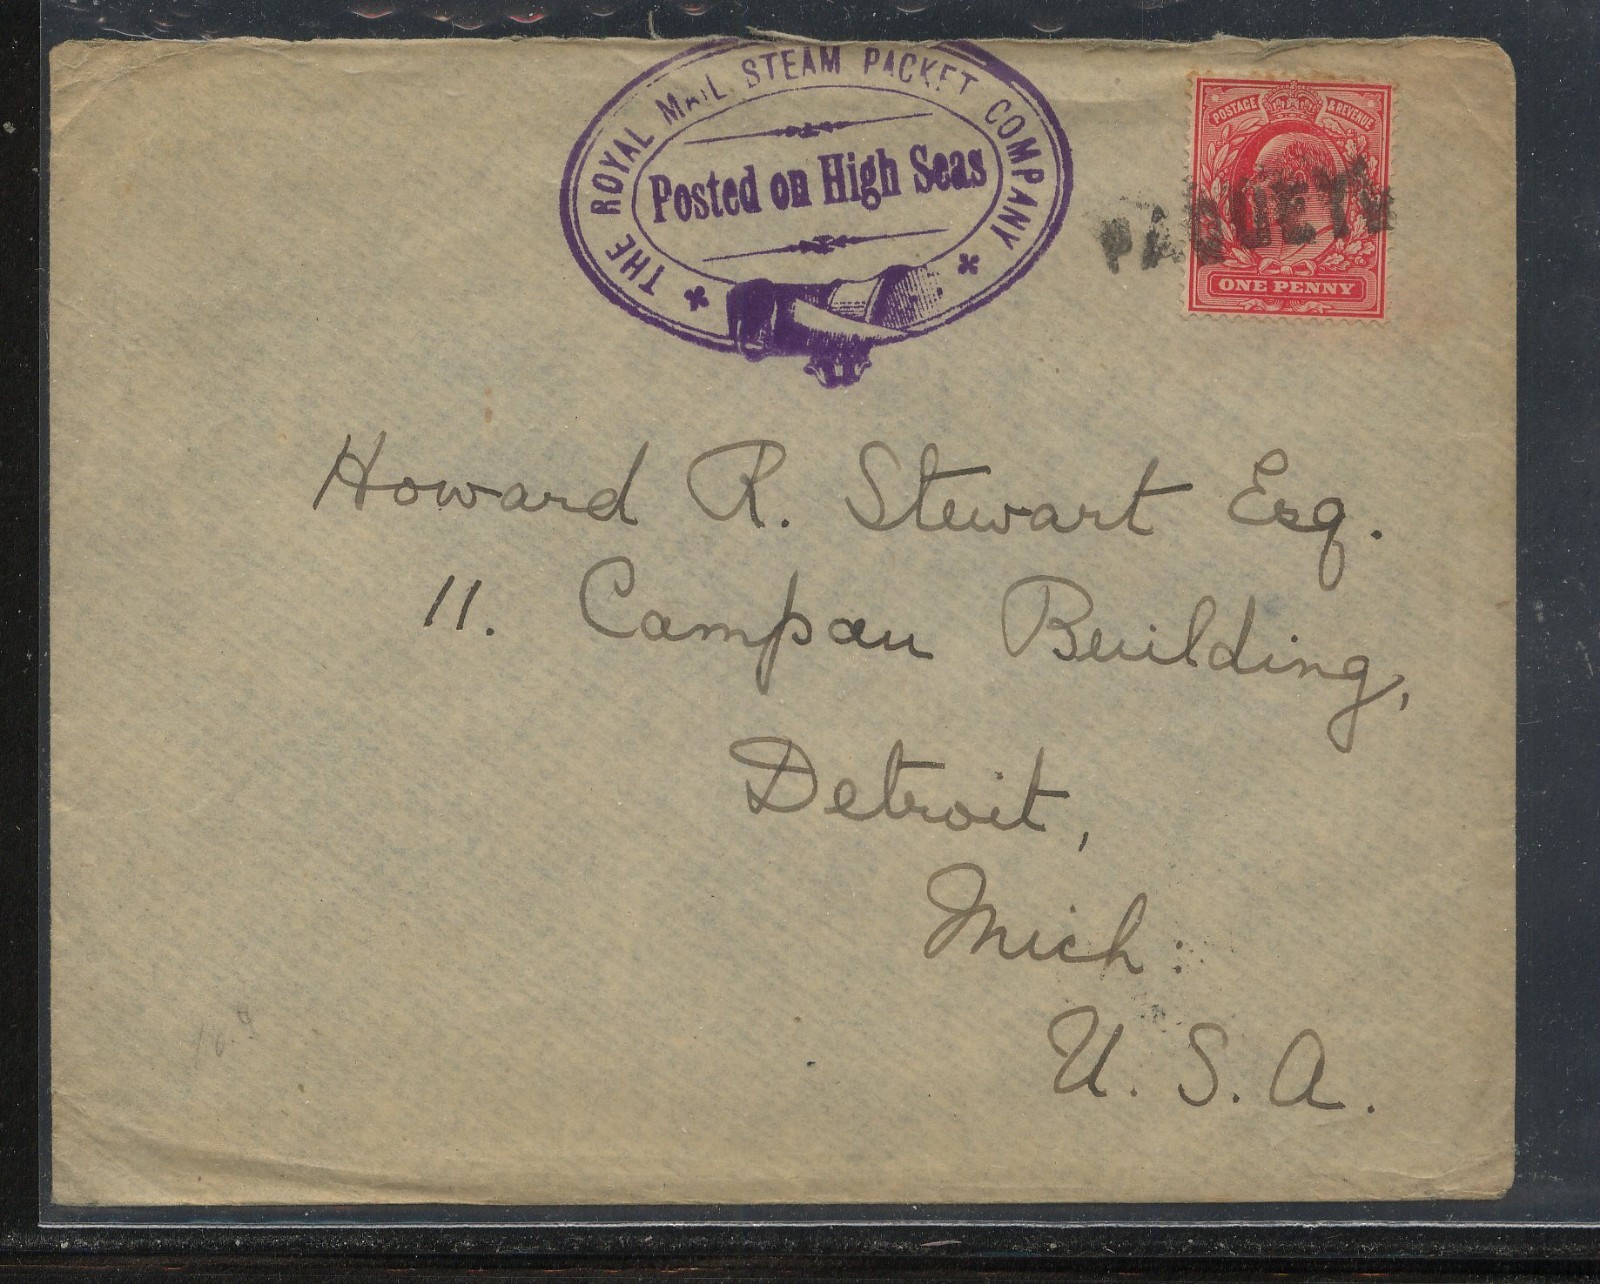 THE ROYAL MAIL STEAM PACKET COMPANY
Posted on High Seas
POSTAGE & REVENUE
ONE PENNY
Howard R. Stewart Esq.
11. Campau Building,
Detroit,
Mich:
U. S. A.